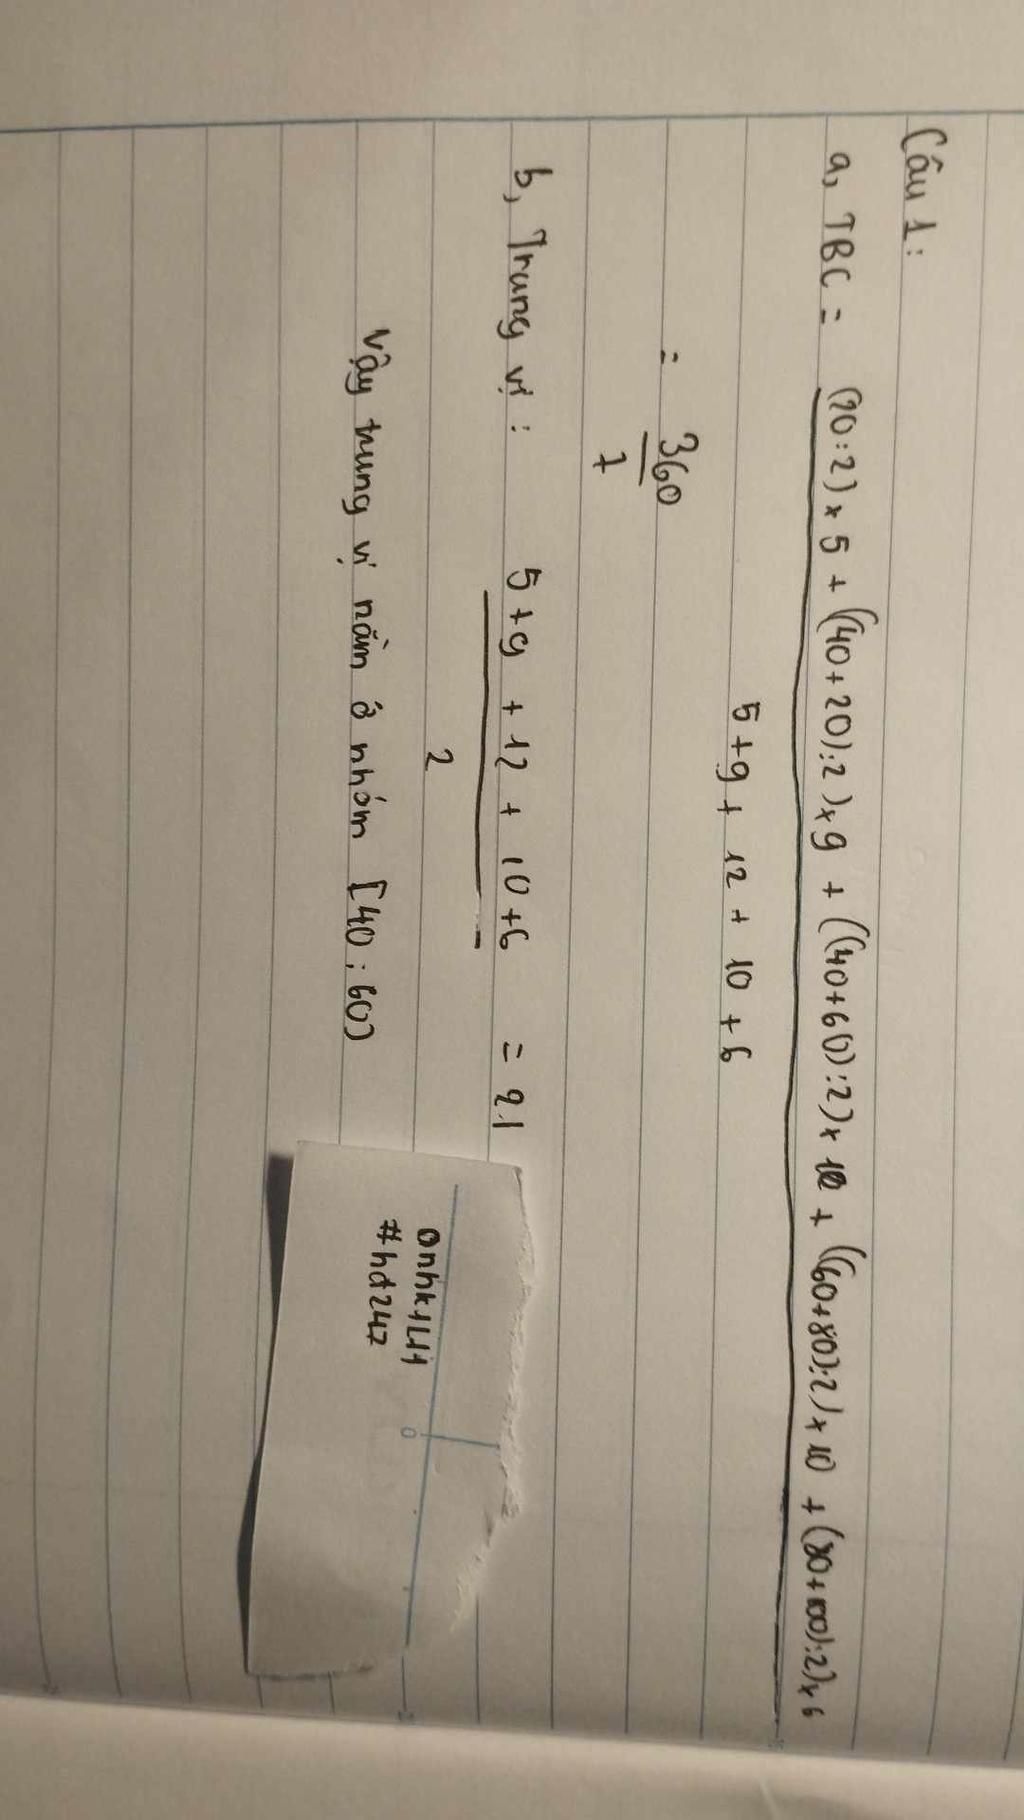 Câu 1:
a, TBC = (20:2) × 5 + ((40+20):2) × 9 + ((40+60):2) × 12 + ((60+80):2) × 10 + (80+100):2) × 6
5 + 9 + 12 + 10 + 6
= 360
7
b, Trung vị : 5 + 9 + 12 + 10 + 6 = 21
2
Vậy trung vị nằm ở nhóm [40 ; 60)
#hd247
0